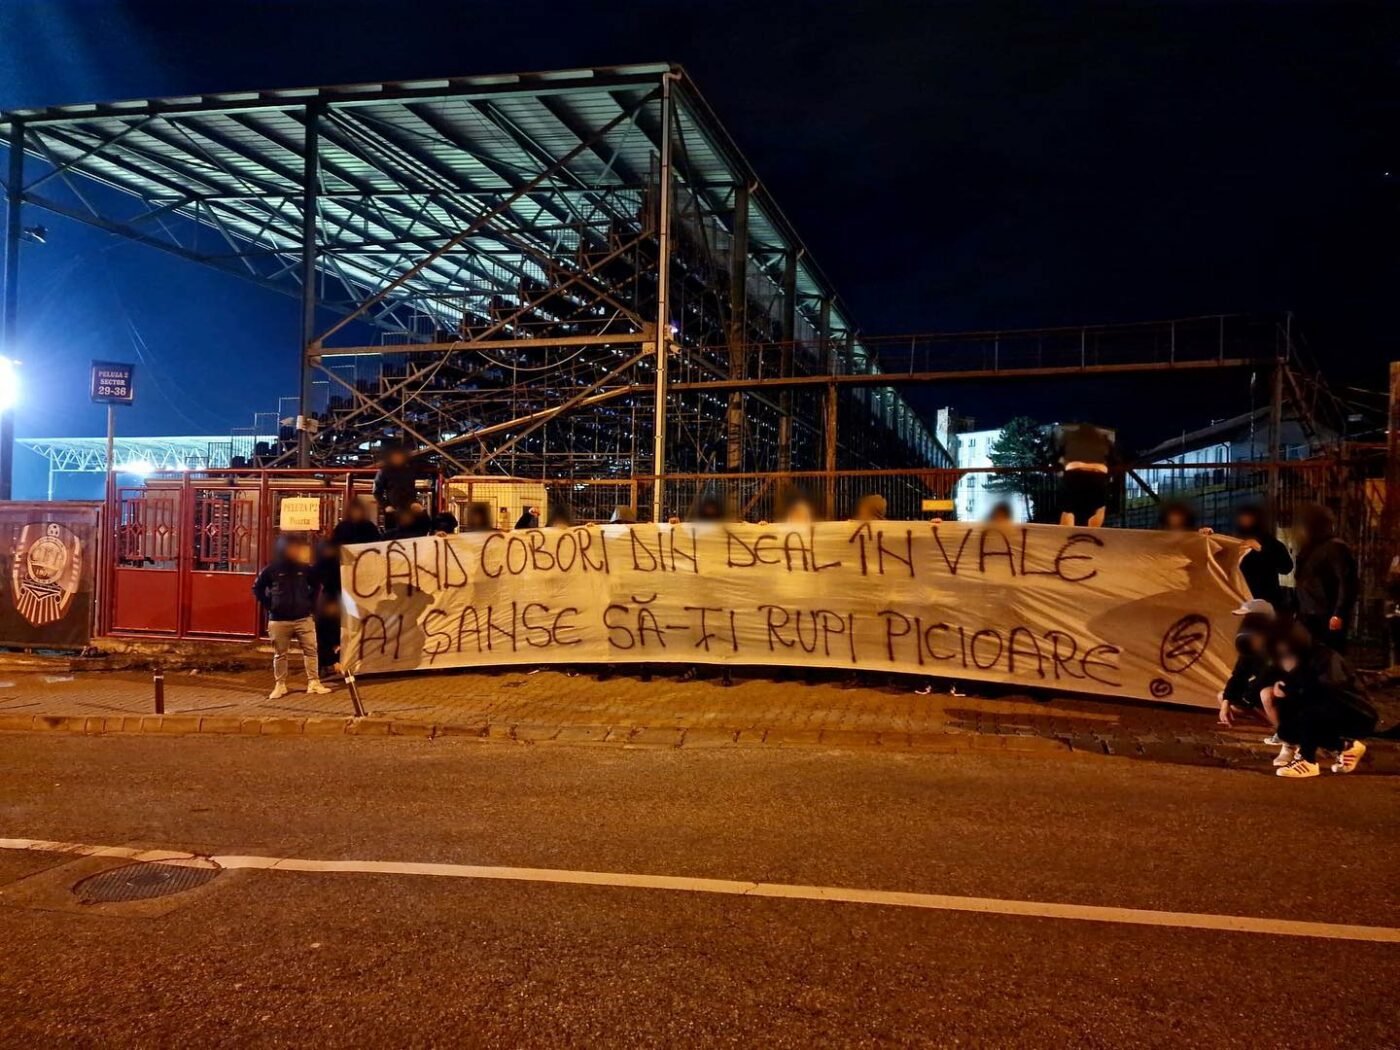 PELUZA 2
SECTOR
29-36
PELUZA P2
Poarta
CÂND COBORI DIN DEAL ÎN VALE
AI ȘANSE SĂ-ȚI RUPI PICIOARE!